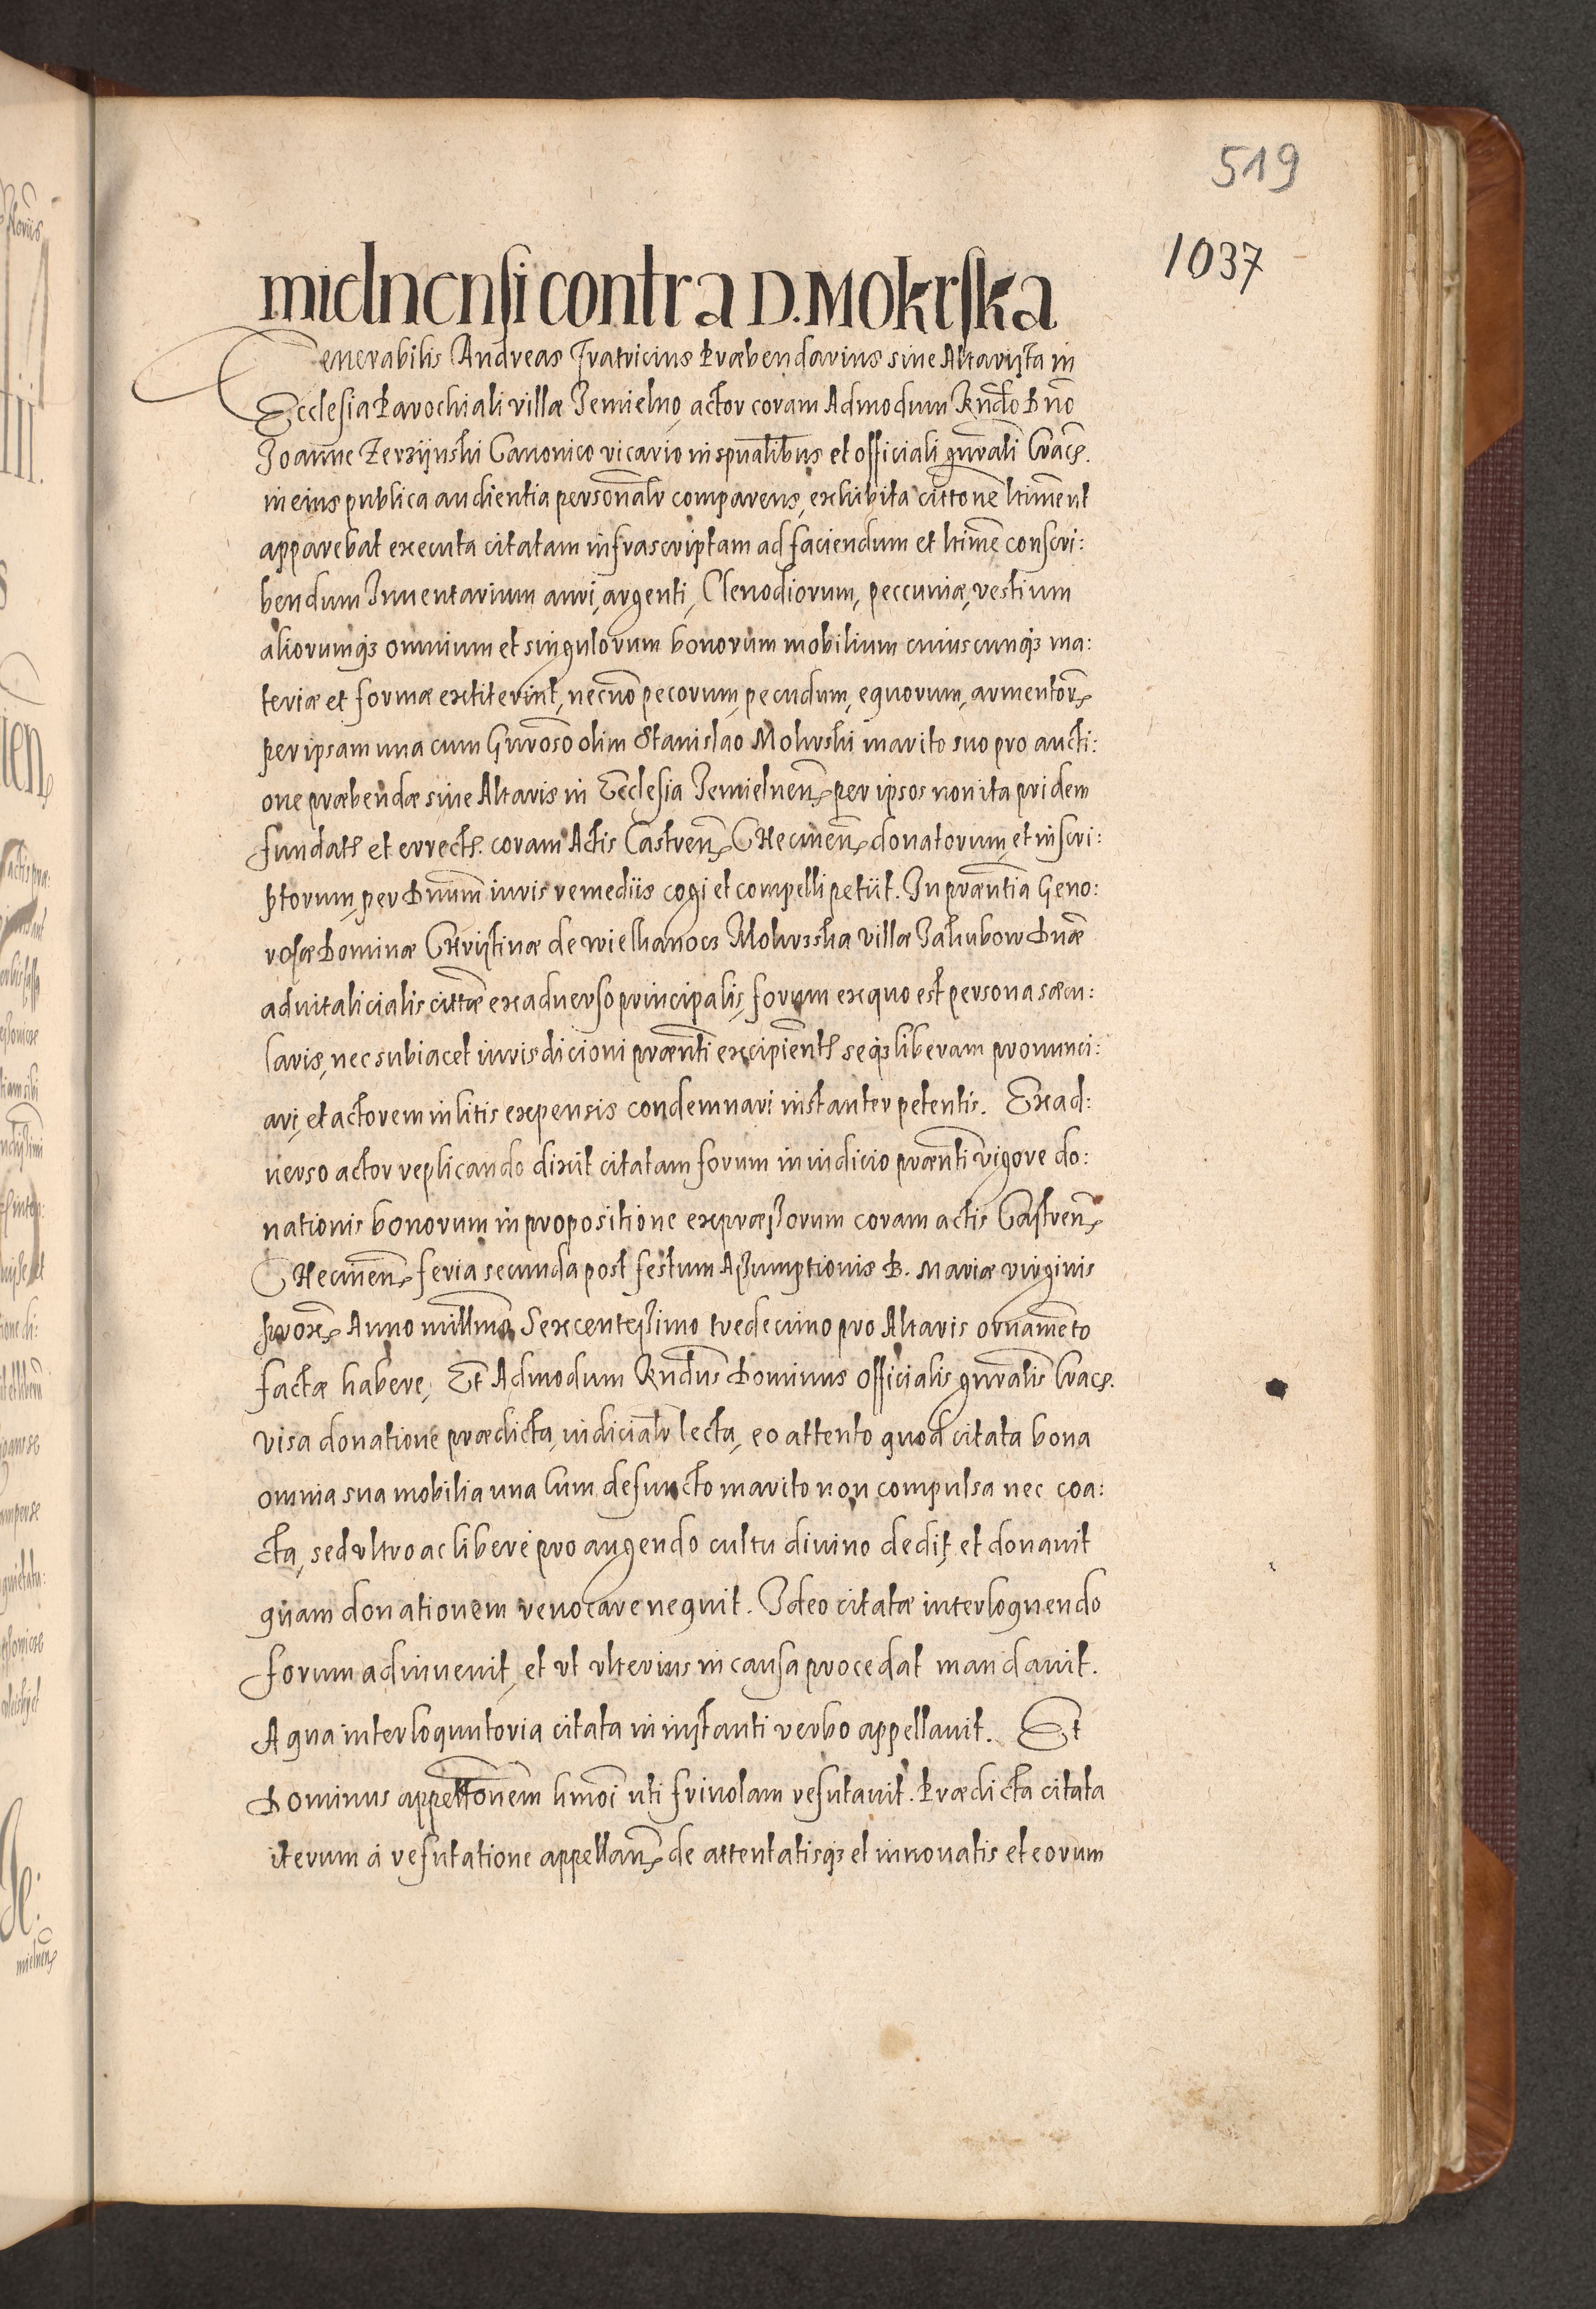 519
1037
mielnensi contra D. Mokrska
Venerabilis Andreas Fratricius Præbendarius siue Altarista in
Ecclesia Parochiali villæ Jemielno, actor coram Admodum Rñdo Dño
Joanne Zerzijnski Canonico vicario in spũalibus et officiali gñrali Crac̃.
in eius publica audientia personalr̃ comparens, exhibita citt̃one ltimẽ ut
apparebat executa citatam infrascriptam ad faciendum et ltimẽ conscri:
bendum Inuentarium auri, argenti, Clenodiorum, peccuniæ, vestium
aliorumq3 omnium et singulorum bonorum mobilium cuiuscunq3 ma:
teriæ et formæ extiterint, necnõ pecorum, pecudum, equorum, armentor
per ipsam una cum Gñroso olim Stanislao Mokrski marito suo pro aucti:
one præbendæ siue Altaris in Ecclesia Jemielneñ per ipsos non ita pridem
fundatæ et errectæ. coram Actis Castreñ Chencineñ donatorum, et inscri:
ptorum, per Dñium iuris remediis cogi et compelli petiit. In præñtia Geno:
rosæ Dominæ Christinæ de wielkanocz Mokrsska villæ Jakubow Dñæ
aduitalicialis cittæ ex aduerso principalis, forum ex quo est persona sæcu:
laris, nec subiacet iurisdicioni præñti excipient seq3 liberam pronunci:
ari, et actorem in litis expensis condemnari instanter petentis. Ex ad:
uerso actor replicando dixit citatam forum in iudicio præñti vigore do:
nationis bonorum in propositione expræssorum coram actis Castreñ
Checineñ feria secunda post festum Assumptionis B. Mariæ virginis
prox Anno millmo Sexcentessimo tredecimo pro Altaris ornamẽto
factæ habere, Et Admodum Rñdus Dominus Officialis gñralis Crac.
visa donatione prædicta, iudicialr̃ lecta, eo attento quod citata bona
omnia sua mobilia una Cum defuncto marito non compulsa nec coa:
cta, sed vltro ac liberè pro augendo cultu diuino dedit et donauit
quam donationem reuocare nequit. Ideo citatæ interloquendo
forum adinuenit, et vt vlterius in causa procedat mandauit.
A qua interloquutoria citata in instanti verbo appellauit. Et
Dominus appellt̃onem hmõi uti friuolam refutauit. Prædicta citata
iterum à refutatione appellañ de attentatisq3 et innouatis et eorum